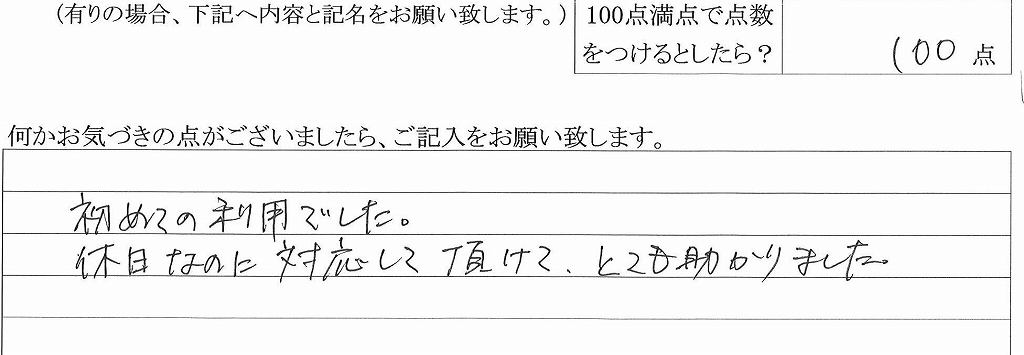 (有りの場合、下記へ内容と記名をお願い致します。)
100点満点で点数
をつけるとしたら？
100 点
何かお気づきの点がございましたら、ご記入をお願い致します。
初めての利用でした。
休日なのに対応して頂けて、とても助かりました。